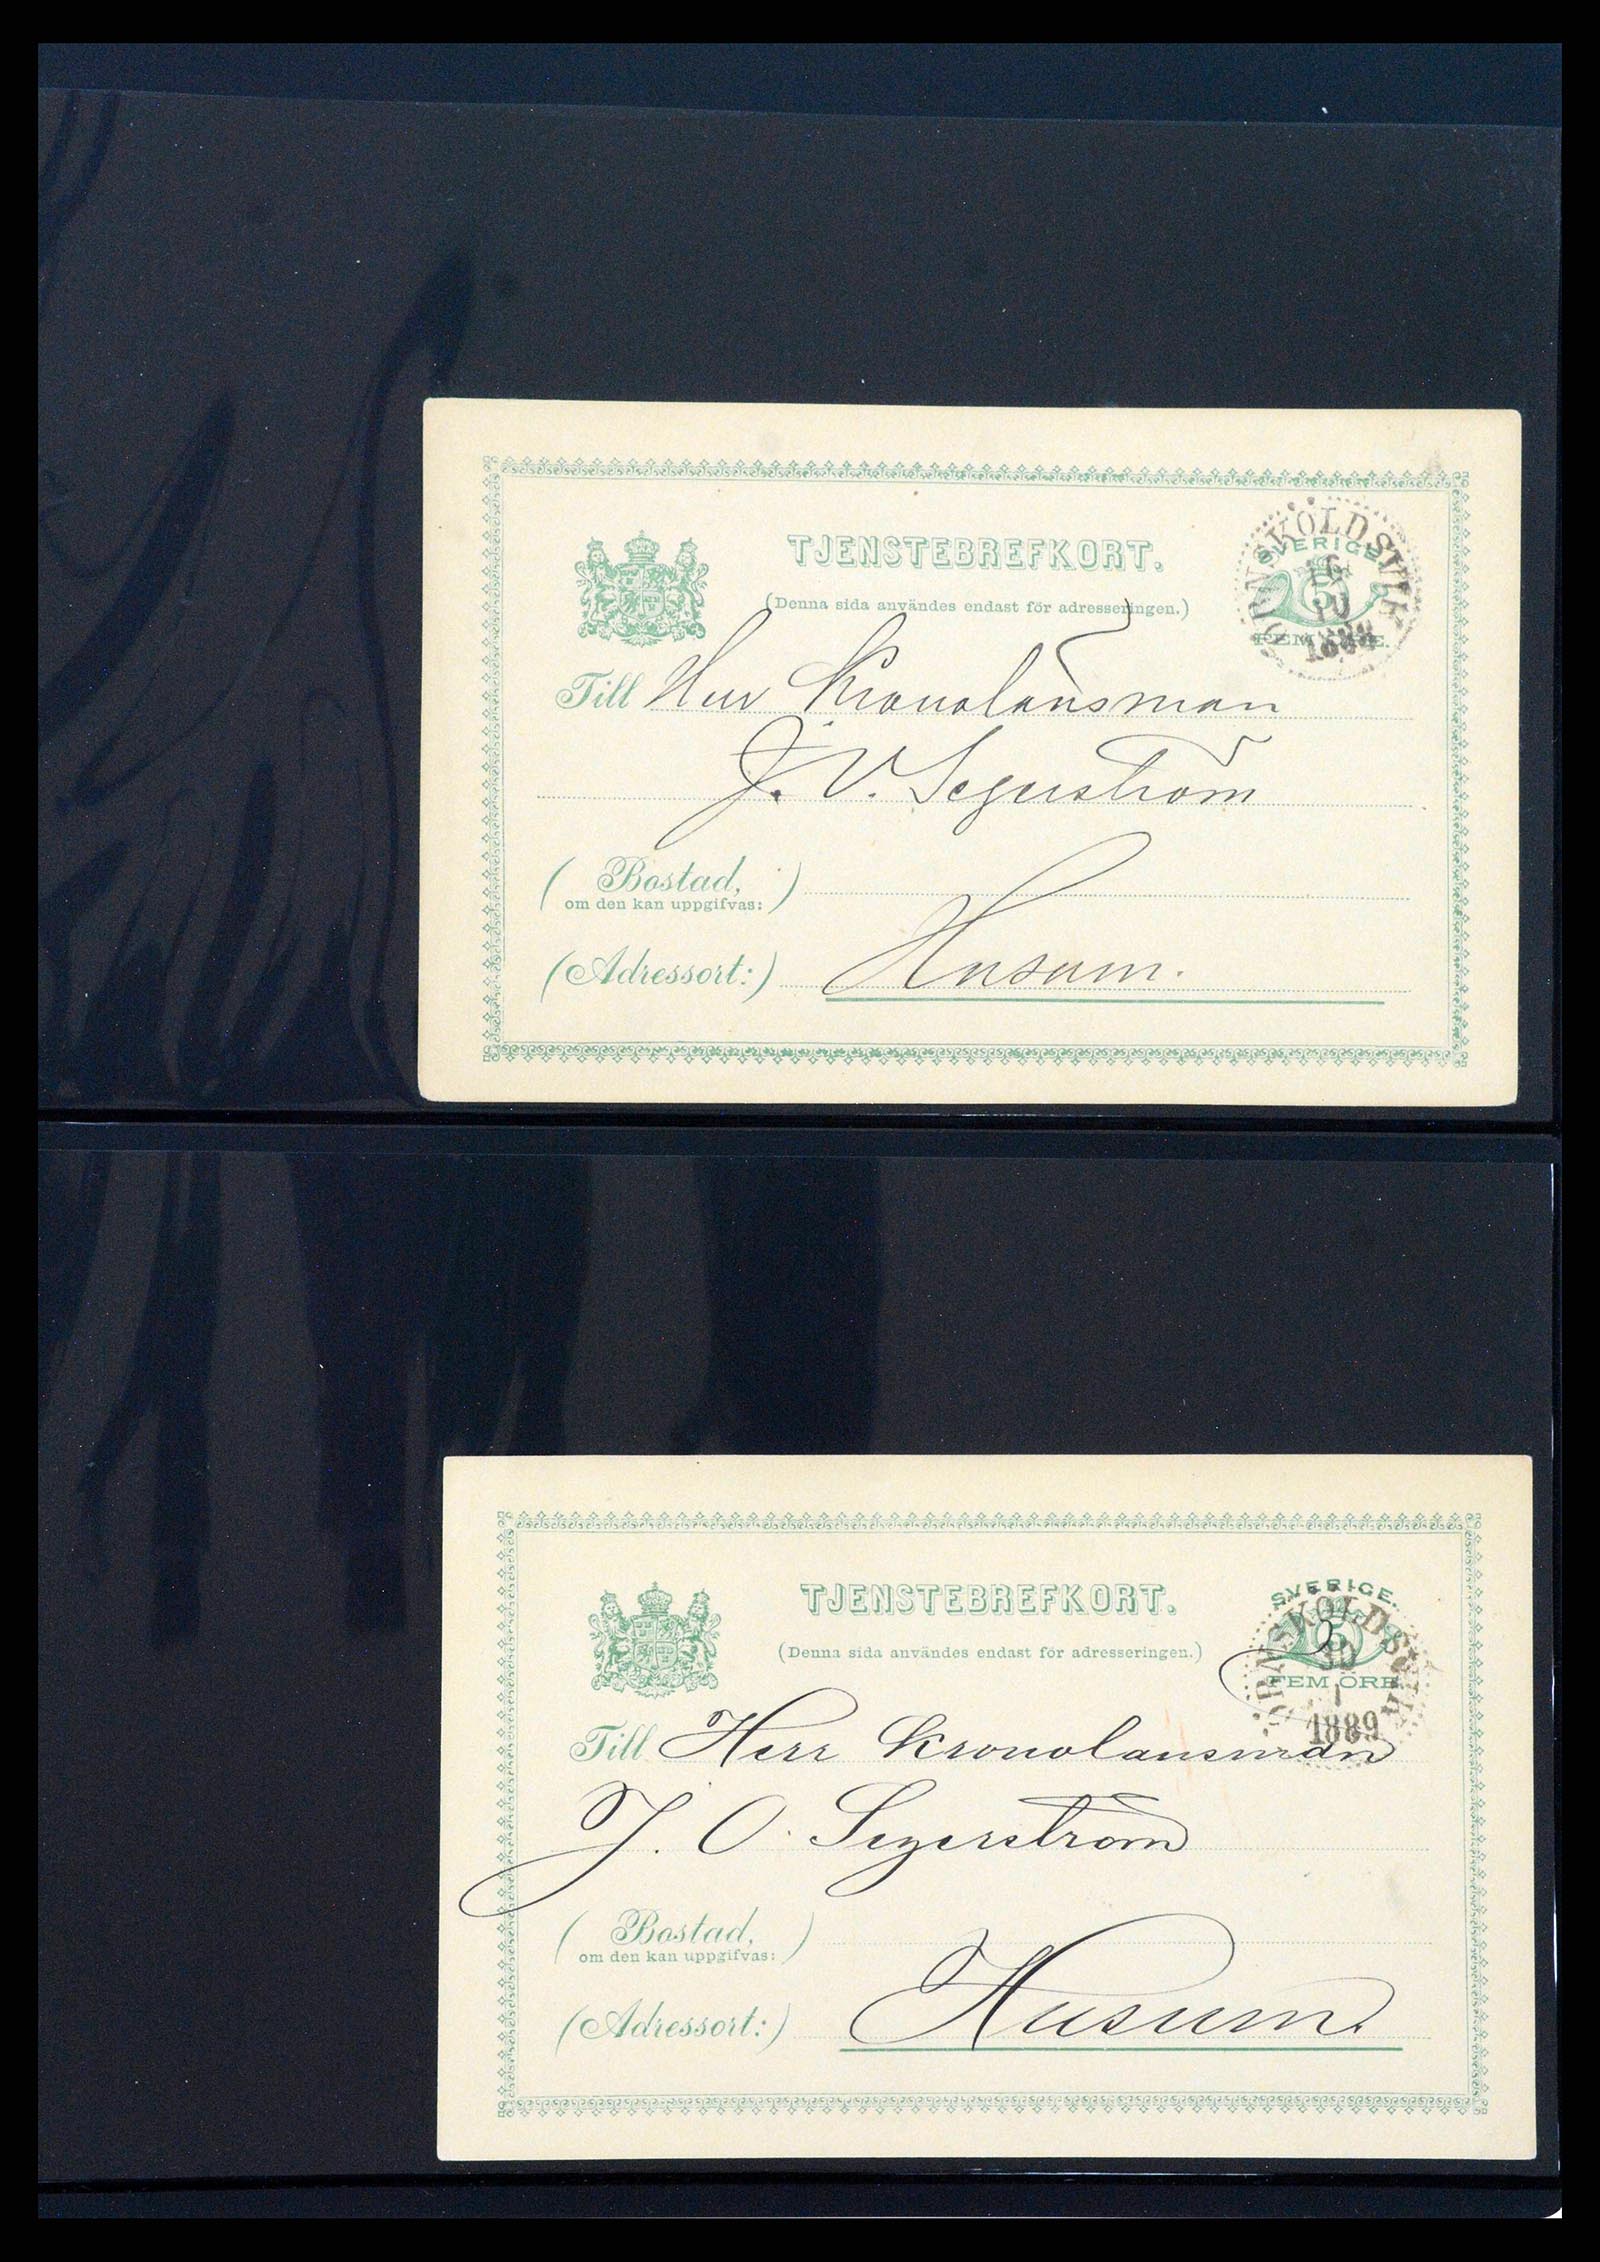 TJENSTEBREFKORT.
(Denna sida användes endast för adresseringen.)
SVERIGE
5
FEM ÖRE.
ÖRNSKÖLDSVIK
16
10
Till Herr Kronolänsman
J. V. Segerström
(Bostad,
om den kan uppgifvas:)
(Adressort:) Husum.
TJENSTEBREFKORT.
(Denna sida användes endast för adresseringen.)
SVERIGE.
5
FEM ÖRE.
ÖRNSKÖLDSVIK
30
1
1889
Till Herr Kronolänsman
J. O. Segerström
(Bostad,
om den kan uppgifvas:)
(Adressort:) Husum.